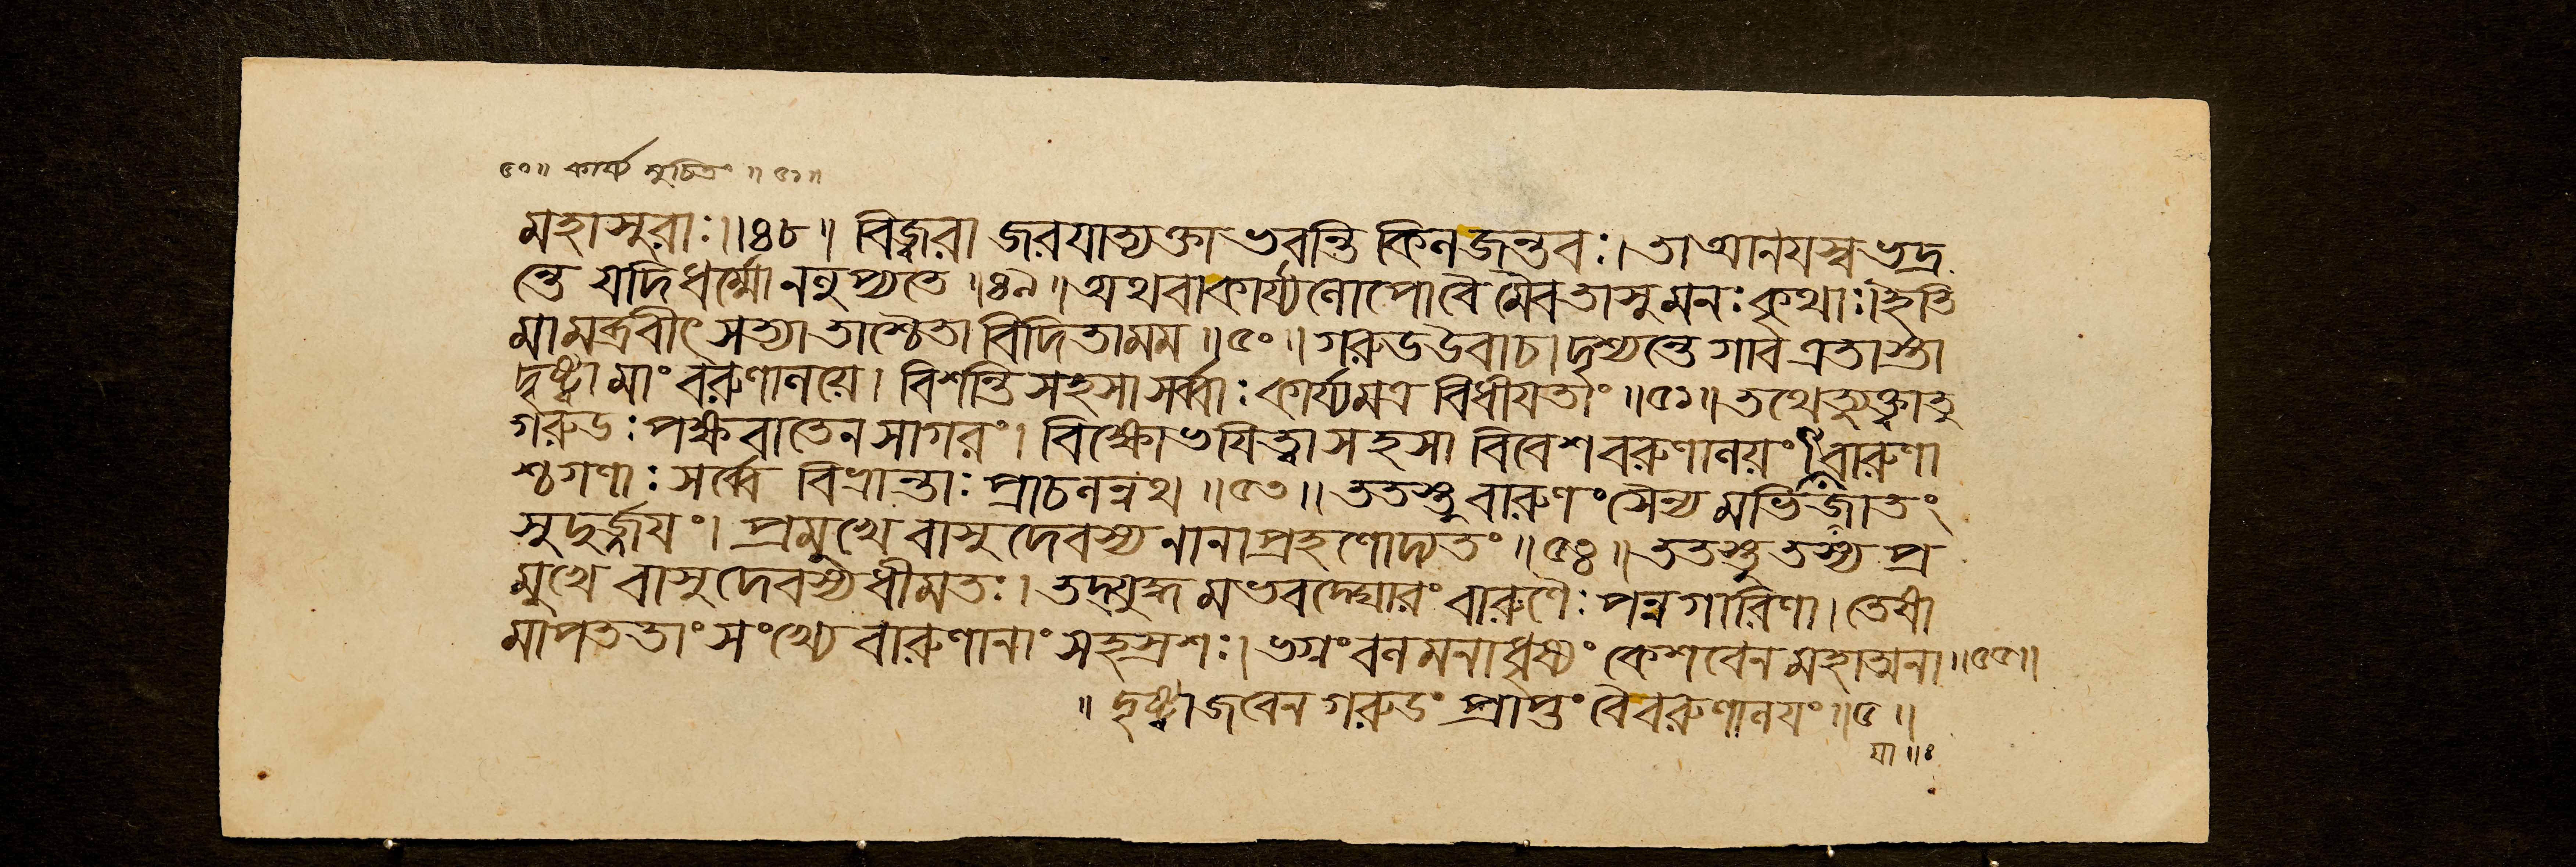 ৫০॥ কার্য্য মুচিতং ॥ ৫১॥
মহাসুরাঃ॥৪৮॥ বিজ্বরা জরযাত্যক্তা ভবন্তি কিল জন্তবঃ। তা আনযস্ব ভদ্র
ন্তে যদি ধর্ম্মো ন লুপ্যতে ॥৪৯॥ অথবা কার্য্যলোপো বৈ মৈব তাসু মনঃ কৃথাঃ। ইতি
মামব্রবীৎ সত্যা তাশ্চৈতা বিদিতা মম ॥৫০॥ গরুড উবাচ। দৃশ্যন্তে গাব এতাস্তা
দৃষ্ট্বা মাং বরুণালয়ে। বিশন্তি সহসা সর্ব্বাঃ কার্য্যমত্র বিধীযতাং ॥৫১॥ তথেত্যুক্ত্বা তু
গরুডঃ পক্ষবাতেন সাগরং। বিক্ষোভযিত্বা সহসা বিবেশ বরুণালয়ং। বারুণা
শ্চ গণাঃ সর্ব্বে বিভ্রান্তাঃ প্রাচলন্নথ ॥৫৩॥ ততস্তু বারুণং সৈন্য মভিজাতং
সুদুর্জ্জযং। প্রমুখে বাসুদেবস্য নানাপ্রহণোদ্যতং ॥৫৪॥ ততস্তু তস্য প্র
মুখে বাসুদেবস্য ধীমতঃ। তদ্যুদ্ধ মভবদ্ঘোরং বারুণৈঃ পন্নগারিণা। তেষা
মাপততাং সংখ্যে বারুণানাং সহস্রশঃ। ভগ্নং বলমনাধৃষ্যং কেশবেন মহাত্মনা॥৫৫॥
॥ দৃষ্ট্বা জবেন গরুডং প্রাপ্তং বৈ বরুণালযং॥৫॥